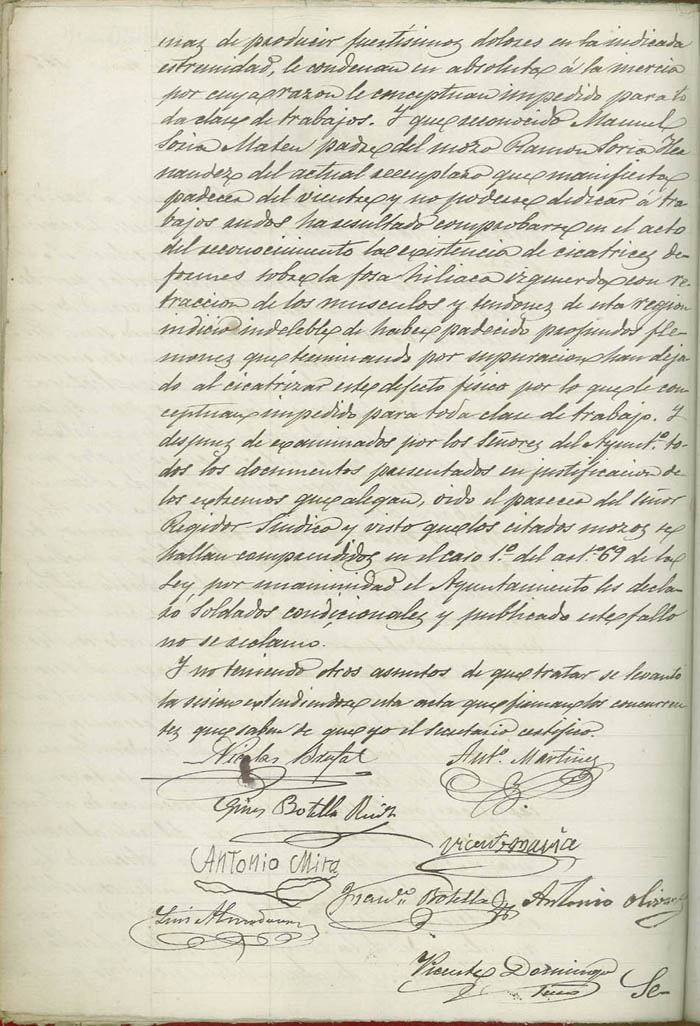 mas de producir fuertísimos dolores en la indicada
estremidad, le condenan en absoluto á la inercia
por cuya razon le conceptuan impedido para to
da clase de trabajos. Y que reconocido Manuel
Soria Mateu padre del mozo Ramon Soria Her
nandez del actual reemplazo que manifiesta
padecer del vientre y no poderse dedicar á tra
bajos rudos ha resultado comprobarse en el acto
del reconocimiento la existencia de cicatrices de-
formes sobre la fosa hiliaca izquierda con re-
traccion de los musculos y tendones de esta region
indicio indeleble de haber padecido profundos fle-
mones que terminando por supuracion han deja-
do al cicatrizar este defecto fisico por lo que le con-
ceptuan impedido para toda clase de trabajo. Y
despues de examinados por los Señores del Ayuntº. to-
dos los documentos presentados en justificacion de
los extremos que alegan, oido el parecer del señor
Regidor Sindico y visto que los citados mozos se
hallan comprendidos en el caso 1º. del artº. 69 de la
Ley, por unanimidad el Ayuntamiento les decla-
ró soldados condicionales y publicado este fallo
no se reclamó.
Y no teniendo otros asuntos de que tratar se levantó
la sesion estendiendose esta acta que firman los concurren
tes que saben de que yo el secretario certifico.
Nicolas Antº. Martinez
Gines Botella
Vicente
Antonio Mira
Botella Antonio
Luis
Vicente Domingo
Se-